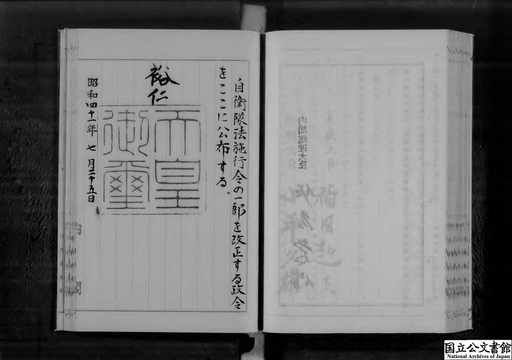 自衛隊法施行令の一部を改正する政令
をここに公布する。
裕仁
天皇
御璽
昭和四十一年七月二十五日
内閣総理大臣
国立公文書館
National Archives of Japan